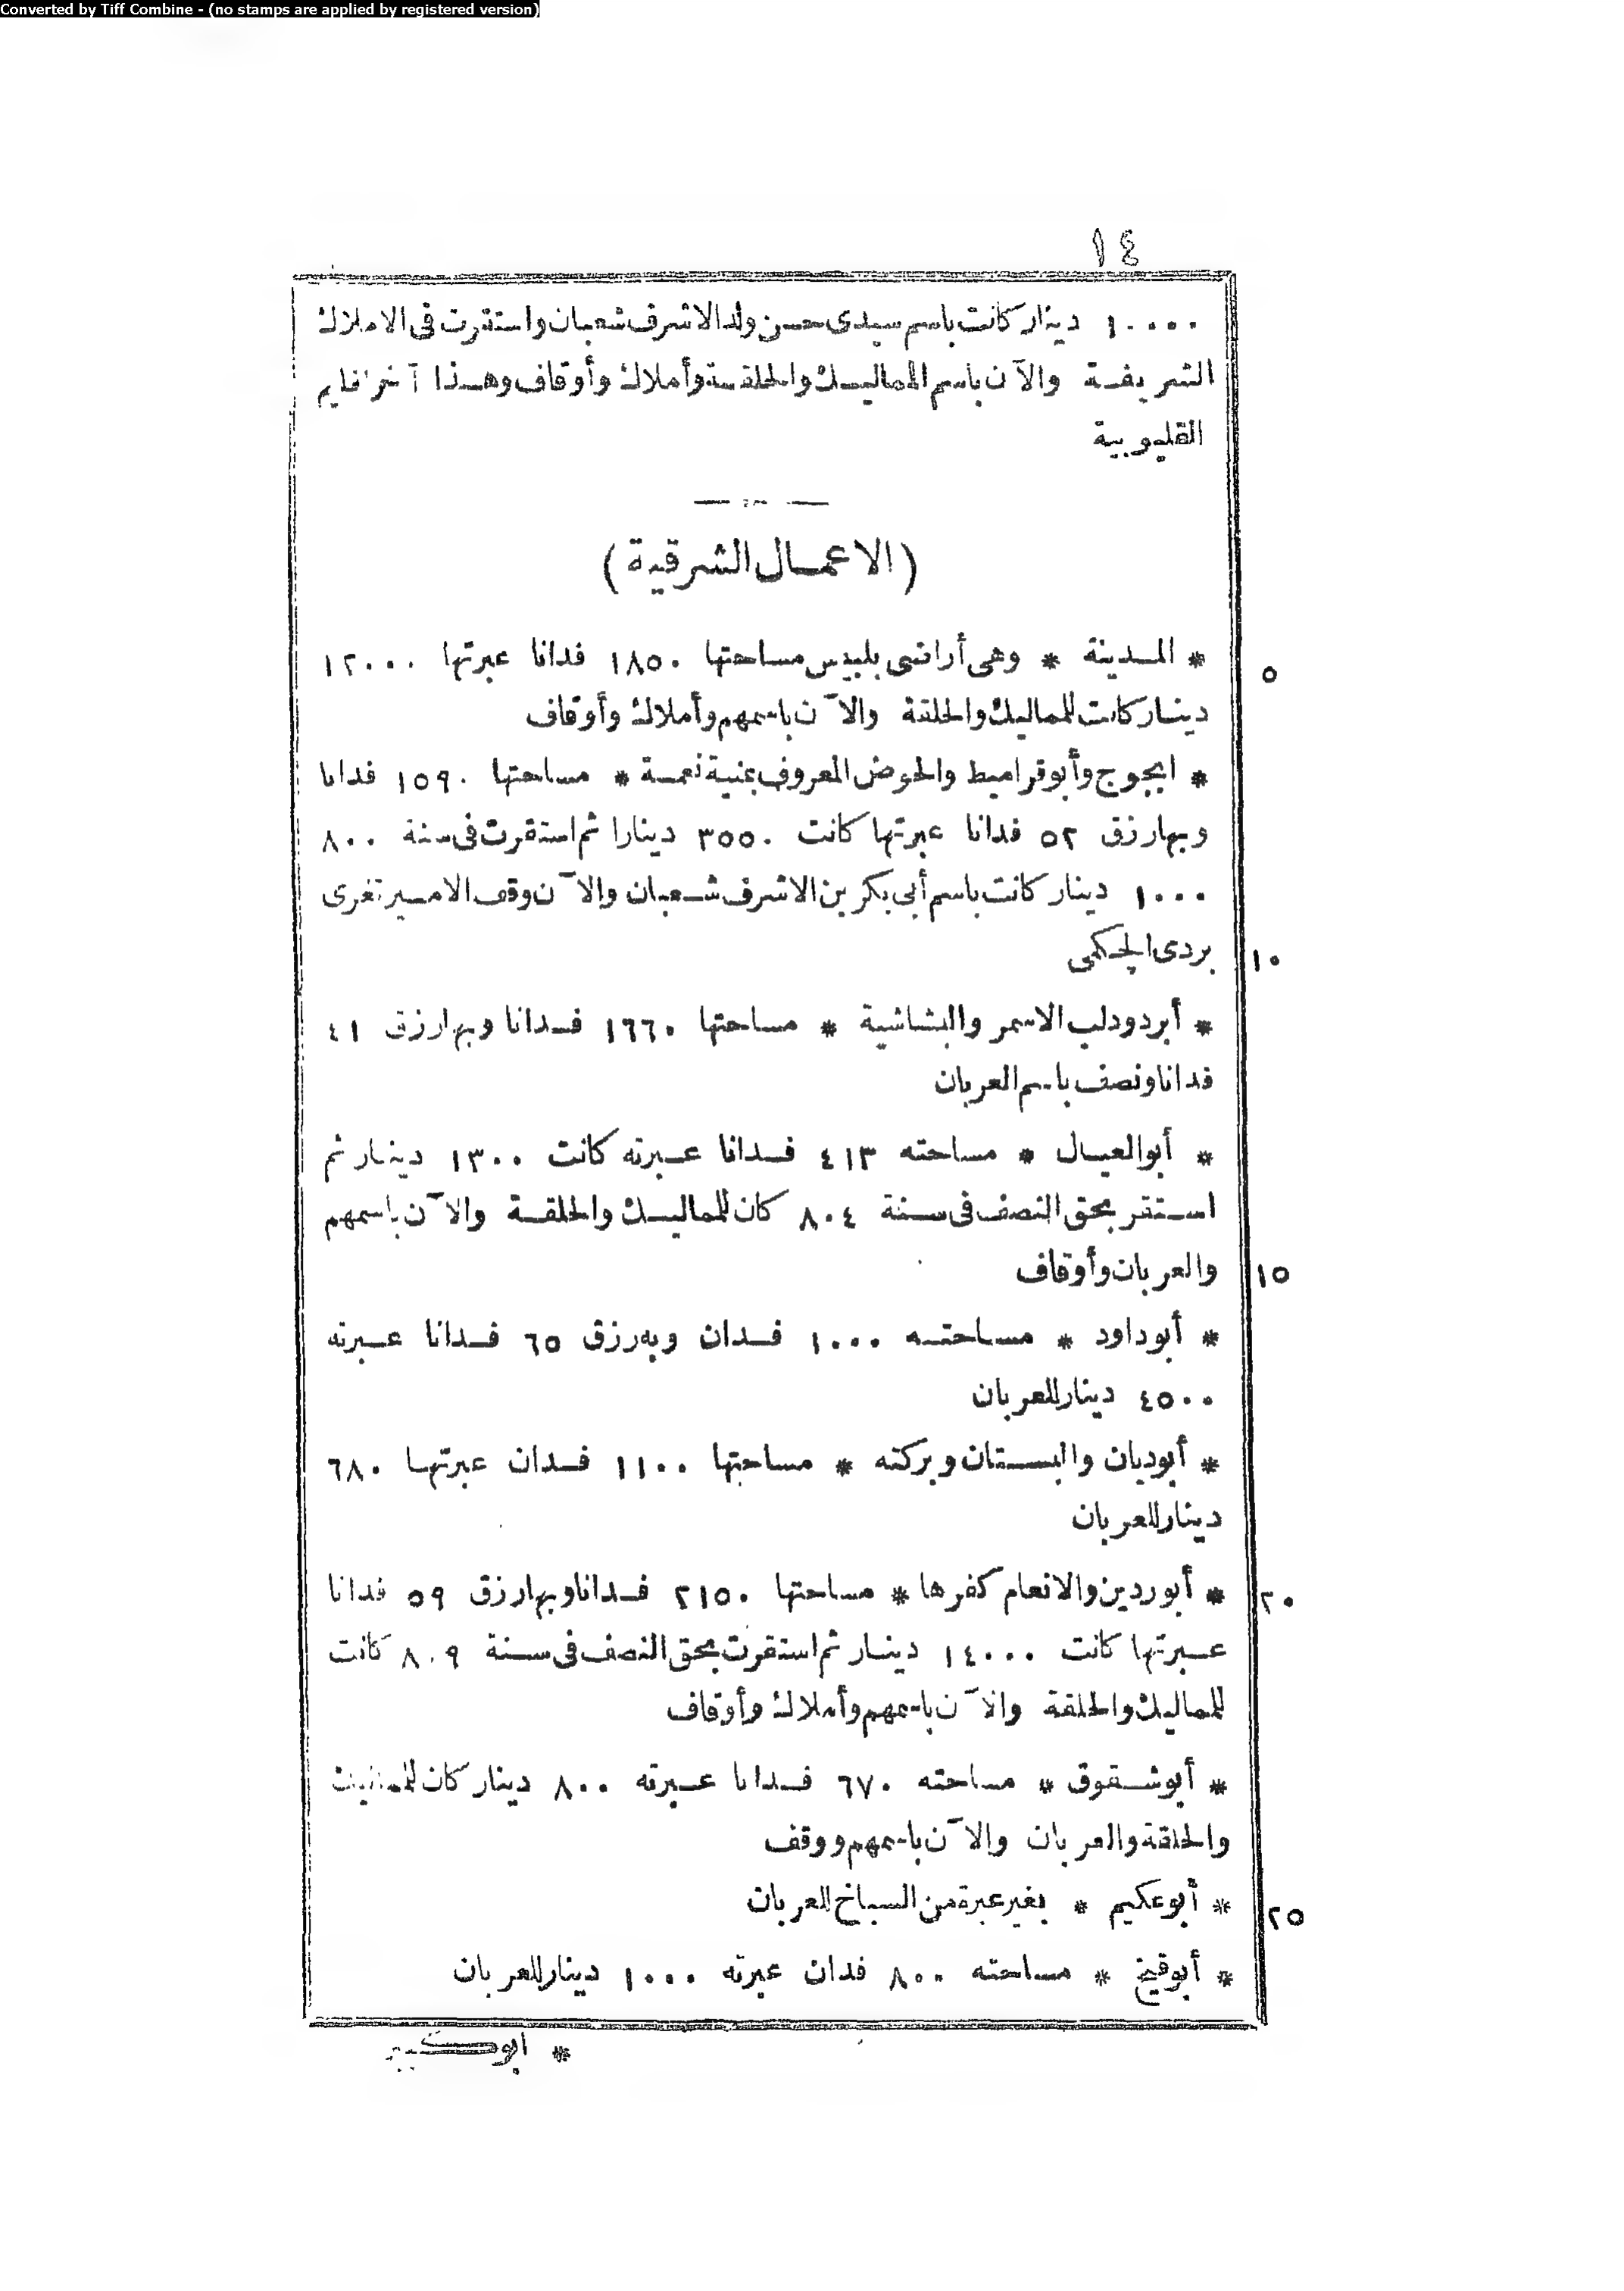 Converted by Tiff Combine - (no stamps are applied by registered version)
١٤
١٠٠٠٠ دينار كانت باسم سيدى حسن ولد الاشرف شعبان واستقرت فى الاملاك
الشريفة والآن باسم المماليك والحلقة وأملاك وأوقاف وهذا آخر اقليم
القليوبية
(الاعمال الشرقية)
* المدينة * وهى أراضى بلبيس مساحتها ١٨٥٠ فدانا عبرتها ١٢٠٠٠
٥
دينار كانت للمماليك والحلقة والآن باسمهم وأملاك وأوقاف
* ابجوج وأبو قراميط والحوض المعروف بمنية نعمة * مساحتها ١٥٩٠ فدانا
وبها رزق ٥٢ فدانا عبرتها كانت ٣٥٥٠ دينارا ثم استقرت فى سنة ٨٠٠
١٠٠٠ دينار كانت باسم أبى بكر بن الاشرف شعبان والآن وقف الامير تغرى
بردى الجكمى
١٠
* أبردودلب الاسمر والبشاشية * مساحتها ١٦٦٠ فدانا وبها رزق ٤١
فدانا ونصف باسم العربان
* أبو العيال * مساحته ٤١٣ فدانا عبرته كانت ١٣٠٠ دينار ثم
استقر بحق النصف فى سنة ٨٠٤ كان للمماليك والحلقة والآن باسمهم
والعربان وأوقاف
١٥
* أبو داود * مساحته ١٠٠٠ فدان وبه رزق ٦٥ فدانا عبرته
٤٥٠٠ دينار للعربان
* أبوديان والبستان وبركته * مساحتها ١١٠٠ فدان عبرتها ٦٨٠
دينار للعربان
* أبوردين والانعام كفرها * مساحتها ٢١٥٠ فدانا وبها رزق ٥٩ فدانا
٢٠
عبرتها كانت ١٤٠٠٠ دينار ثم استقرت بحق النصف فى سنة ٨٠٩ كانت
للمماليك والحلقة والآن باسمهم وأملاك وأوقاف
* أبو شقوق * مساحته ٦٧٠ فدانا عبرته ٨٠٠ دينار كان للمماليك
والحلقة والعربان والآن باسمهم ووقف
* أبو عكيم * بغير عبرة من السباخ للعربان
٢٥
* أبو قيخ * مساحته ٨٠٠ فدان عبرته ١٠٠٠ دينار للعربان
* ابو كبير